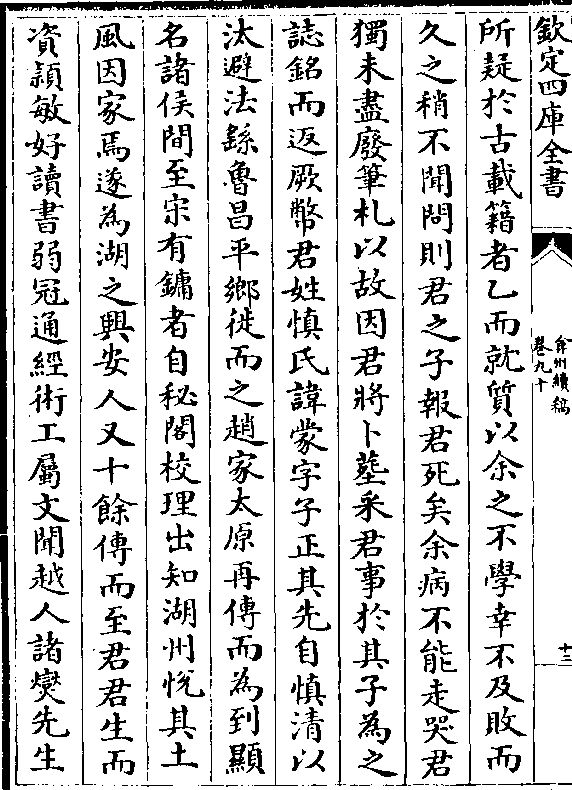 欽定四庫全書
弇州續稿
卷九十
十三
所疑於古載籍者乙而就質以余之不學幸不及敗而
久之稍不聞問則君之子報君死矣余病不能走哭君
獨未盡廢筆札以故因君將卜墓采君事於其子為之
誌銘而返厥幣君姓慎氏諱蒙字子正其先自慎清以
汰避法繇魯昌平鄉徙而之趙家太原再傳而為到顯
名諸侯間至宋有鏞者自秘閣校理出知湖州悅其土
風因家焉遂為湖之興安人又十餘傳而至君君生而
資頴敏好讀書弱冠通經術工屬文聞越人諸燮先生